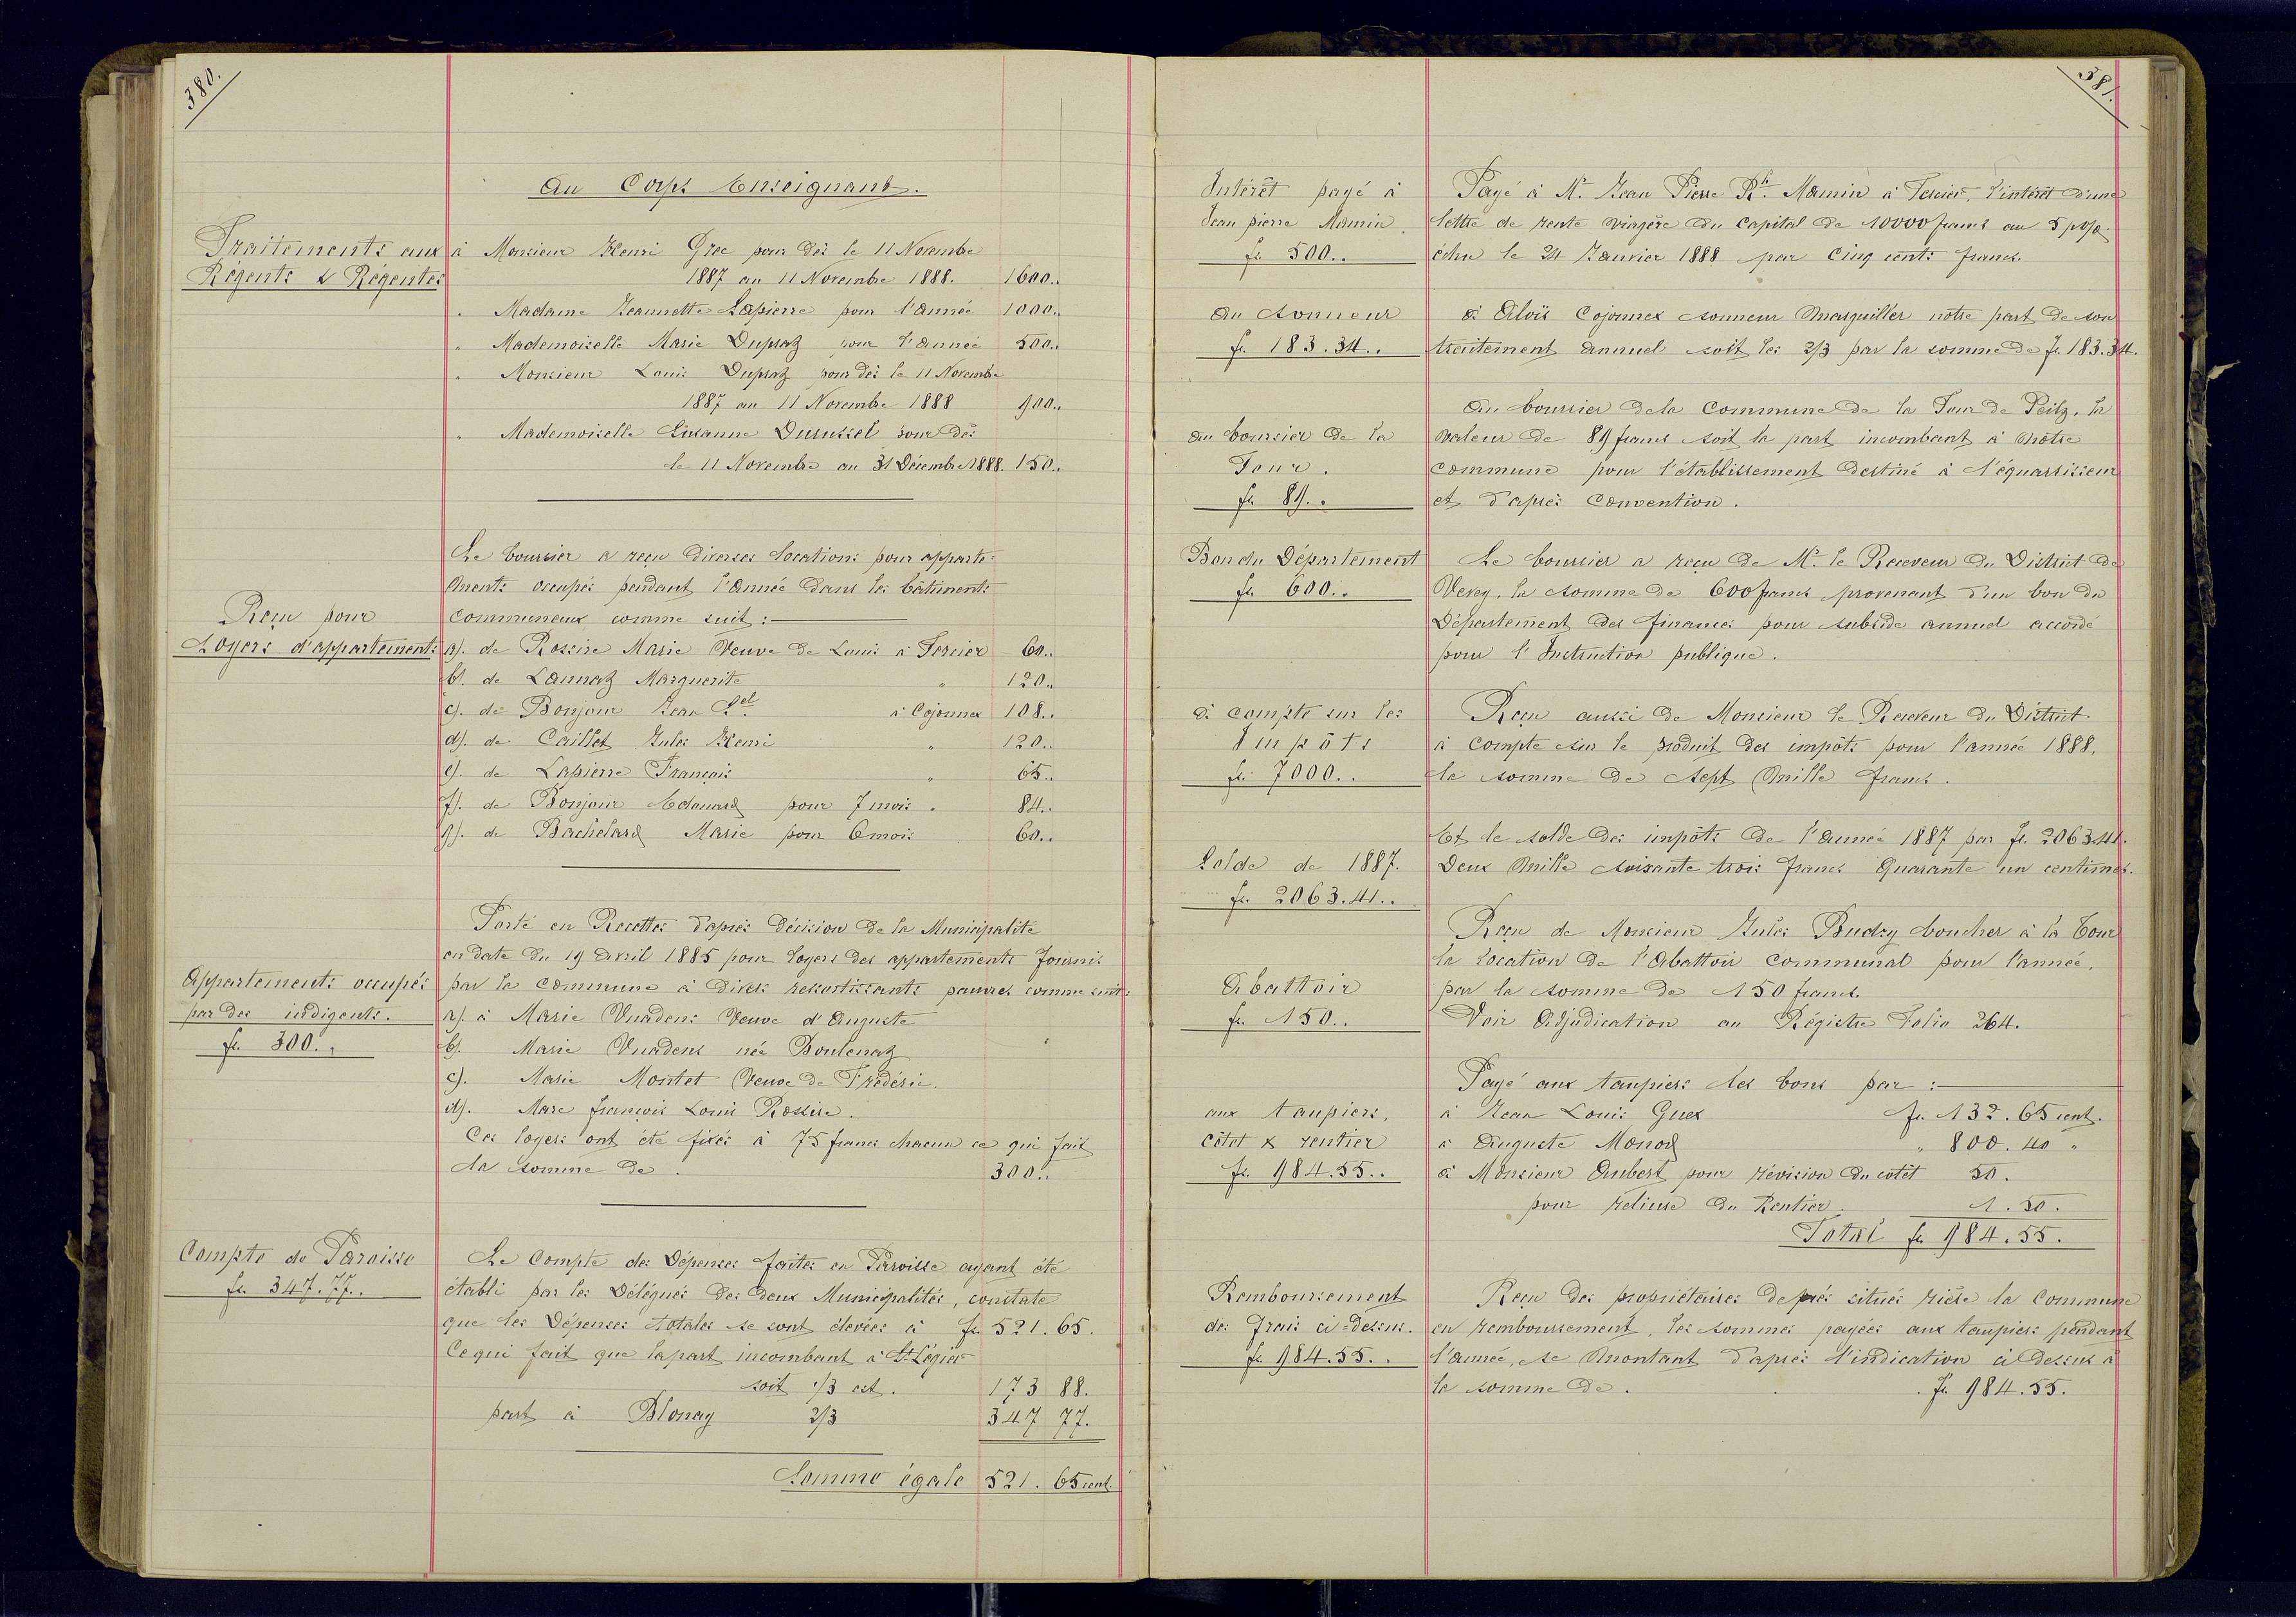 380.
Au Corps Enseignant.
Traitements aux
Régents & Régentes
à Monsieur Henri Grec pour dès le 11 Novembre
1887 au 11 Novembre 1888. 1600..
" Madame Jeannette Lapierre pour l'année 1000..
" Mademoiselle Marie Dupraz pour l'année 500..
" Monsieur Louis Dupraz pour dès le 11 Novembre
1887 au 11 Novembre 1888 900..
" Mademoiselle Susanne Durussel pour dès
le 11 Novembre au 31 Décembre 1888. 150..
Le boursier a reçu diverses locations pour apparte-
ments occupés pendant l'année dans les bâtiments
communaux comme suit :
Reçu pour
Loyers d'appartements
a). de Rossire Marie Veuve de Louis à Tercier 60..
b). de Launaz Marguerite " 120..
c). de Bonjour Jean Sel. à Cojonnex 108..
d). de Caillet Jules Henri " 120..
e). de Lapierre François " 65..
f). de Bonjour Edouard pour 7 mois " 84..
g). de Bachelard Marie pour 6 mois 60..
Porté en Recettes d'après décision de la Municipalité
en date du 19 Avril 1885 pour loyers des appartements fournis
par la commune à divers ressortissants pauvres comme suit :
Appartements occupés
par des indigents.
fr. 300..
a). à Marie Vuadens Veuve d'Auguste
b). Marie Vuadens née Boulenaz
c). Marie Montet Veuve de Frédéric.
d). Marc François Louis Rossire.
Ces loyers ont été fixés à 75 francs chacun ce qui fait
la somme de . 300..
Compte de Paroisse
fr. 347.77..
Le Compte des Dépenses faites en Paroisse ayant été
établi par les Délégués des deux Municipalités, constate
que les Dépenses totales se sont élevées à fr. 521.65.
Ce qui fait que la part incombant à St Légier
soit 1/3 est. 173 88.
part à Blonay 2/3 347 77.
Somme égale 521. 65 cent.
381.
Intérêt payé à
Jean pierre Mamin.
fr. 500..
Payé à Mr. Jean Pierre Rh. Mamin à Tercier, l'intérêt d'une
lettre de rente viagère du Capital de 10000 francs au 5 p%
échu le 24 Janvier 1888 par Cinq cents francs.
Au Sonneur
fr. 183.34..
à Aloïs Cojonnex sonneur Marguiller notre part de son
traitement annuel soit les 2/3 par la somme de fr. 183.34.
au boursier de la
Tour.
fr. 89..
Au boursier de la Commune de la Tour de Peilz. la
valeur de 89 francs soit la part incombant à notre
commune pour l'établissement destiné à l'équarrisseur
et d'après Convention.
Bon du Département
fr. 600..
Le boursier a reçu de Mr. le Receveur du District de
Vevey, la somme de 600 francs provenant d'un bon du
Département des finances pour subside annuel accordé
pour l'Instruction publique.
à compte sur les
Impôts
fr. 7000..
Reçu aussi de Monsieur le Receveur du District
à compte sur le produit des impôts pour l'année 1888.
la somme de Sept Mille francs.
Solde de 1887.
fr. 2063.41..
Et le solde des impôts de l'année 1887 par fr. 2063.41.
Deux Mille soixante trois francs Quarante un centimes.
Abattoir
fr. 150..
Reçu de Monsieur Jules Budry boucher à la Tour
la location de l'Abattoir communal pour l'année,
par la somme de 150 francs.
Voir Adjudication au Régistre Folio 264.
aux taupiers,
côtet & rentier
fr. 984.55..
Payé aux taupiers des bons par :
à Jean Louis Guex fr. 132.65 cent.
à Auguste Monod " 800.40 "
à Monsieur Aubert pour révision du côtet 50.
pour reliure du Rentier. 1.50.
Total fr. 984.55.
Remboursement
des frais ci-dessus.
fr. 984.55..
Reçu des propriétaires de prés situés rière la Commune
en remboursement, les sommes payées aux taupiers pendant
l'année, se montant d'après l'indication ci dessus à
la somme de . . . fr. 984.55.